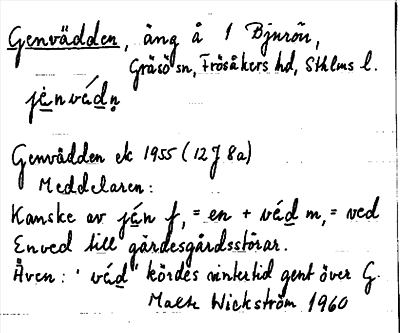 Genvädden, äng å 1 Bjurön,
Gräsö sn, Frösåkers hd, Sthlms l.
jè̱nvá̱dn̥
Genvädden ek 1955 (12J 8a)
Meddelaren:
Kanske av jé̱n f, = en + vá̱d m, = ved
Enved till gärdesgårdsstörar.
Även: "vá̱d" kördes vintertid gent över G.
Malte Wickström 1960